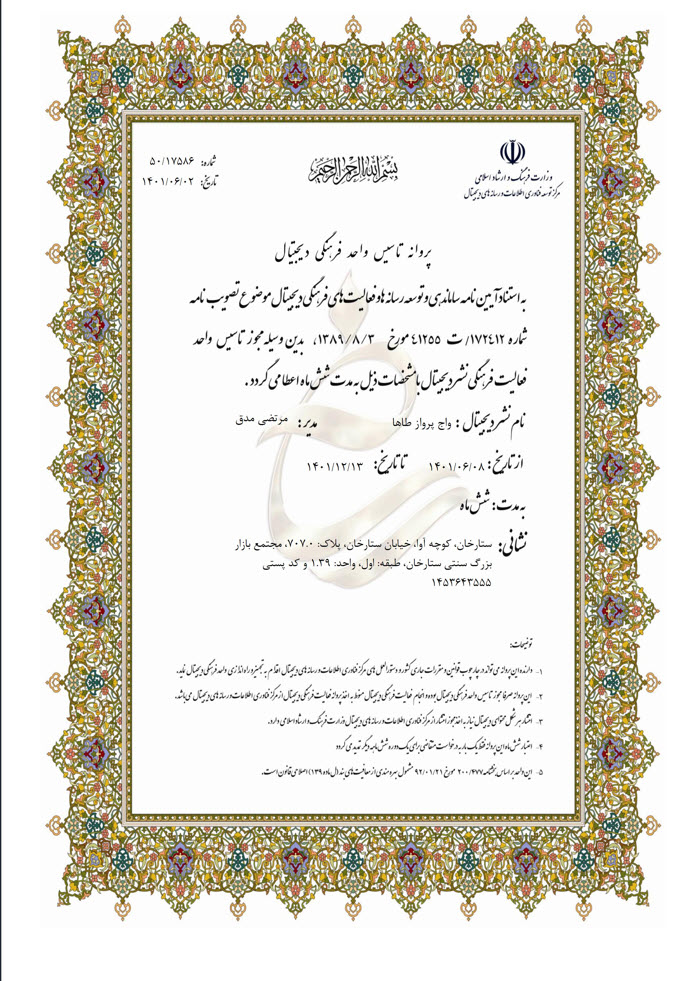 بسم الله الرحمن الرحیم
وزارت فرهنگ و ارشاد اسلامی
مرکز توسعه فناوری اطلاعات و رسانه های دیجیتال
شماره: ۵۰/۱۷۵۸۶
تاریخ: ۱۴۰۱/۰۶/۰۲
پروانه تاسیس واحد فرهنگی دیجیتال
به استناد آیین نامه ساماندهی و توسعه رسانه ها و فعالیت های فرهنگی دیجیتال موضوع تصویب نامه
شماره ۱۷۲۴۱۲/ ت ۴۱۲۵۵ مورخ ۱۳۸۹/۸/۳، بدین وسیله مجوز تاسیس واحد
فعالیت فرهنگی نشر دیجیتال با مشخصات ذیل به مدت شش ماه اعطا می گردد.
نام نشر دیجیتال: واج پرواز طاها مدیر: مرتضی مدق
از تاریخ: ۱۴۰۱/۰۶/۰۸ تا تاریخ: ۱۴۰۱/۱۲/۱۳
به مدت: شش ماه
نشانی: ستارخان، کوچه آوا، خیابان ستارخان، پلاک: ۷۰۷.۰، مجتمع بازار
بزرگ سنتی ستارخان، طبقه: اول، واحد: ۱.۳۹ و کد پستی
۱۴۵۳۶۴۳۵۵۵
توضیحات:
۱- دارنده این پروانه می تواند در چارچوب قوانین و مقررات جاری کشور و دستورالعمل های مرکز فناوری اطلاعات و رسانه های دیجیتال اقدام به تجهیز و راه اندازی واحد فرهنگی دیجیتال نماید.
۲- این پروانه صرفا مجوز تاسیس واحد فرهنگی دیجیتال بوده و انجام فعالیت فرهنگی دیجیتال منوط به اخذ پروانه فعالیت فرهنگی دیجیتال از مرکز فناوری اطلاعات و رسانه های دیجیتال می باشد.
۳- انتشار هر شکل محتوای دیجیتال نیاز به اخذ مجوز انتشار از مرکز فناوری اطلاعات و رسانه های دیجیتال وزارت فرهنگ و ارشاد اسلامی دارد.
۴- اعتبار شش ماه این پروانه فقط یک بار به درخواست متقاضی برای یک دوره شش ماهه دیگر تمدید می گردد
۵- این واحد بر اساس بخشنامه ۲۰۰/۴۷۷ مورخ ۹۲/۰۱/۲۱ مشمول بهره مندی از معافیت های بند (ل ماده ۱۳۹) اصلاحی قانون است.